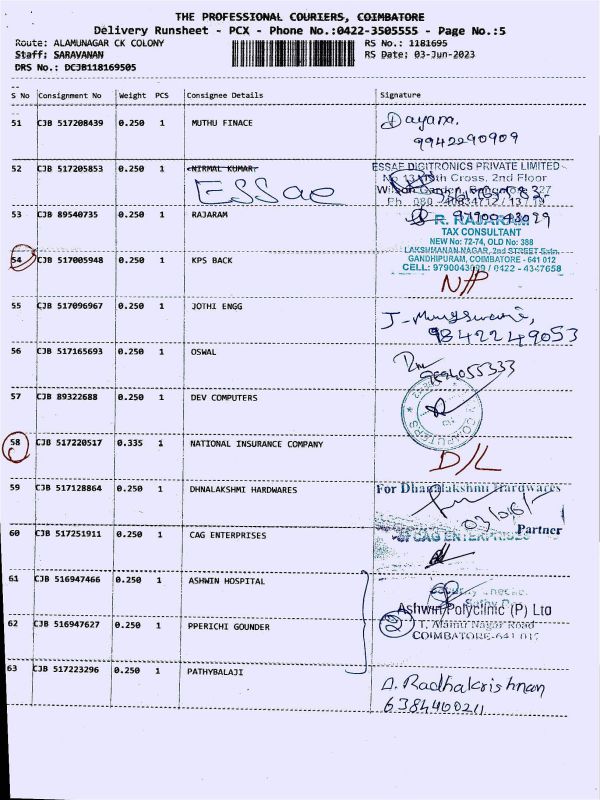 THE PROFESSIONAL COURIERS, COIMBATORE
Delivery Runsheet - PCX - Phone No.:0422-3505555 - Page No.:5
Route: ALAMUNAGAR CK COLONY
RS No.: 1181695
Staff: SARAVANAN
RS Date: 03-Jun-2023
DRS No.: DCJB118169505
S No Consignment No Weight PCS Consignee Details Signature
51 CJB 517208439 0.250 1 MUTHU FINACE
Dayana.
9942290909
52 CJB 517205853 0.250 1 NIRMAL KUMAR.
ESSae
ESSAE DIGITRONICS PRIVATE LIMITED
Cross, 2nd Floor
53 CJB 89540735 0.250 1 RAJARAM
9790043099
R. RAJARAM
TAX CONSULTANT
NEW No: 72-74, OLD No: 388
LAKSHMANAN NAGAR, 2nd STREET Extn.
GANDHIPURAM, COIMBATORE - 641 012
CELL: 9790043099 / 0422 - 4347658
54 CJB 517005948 0.250 1 KPS BACK
N/A
55 CJB 517096967 0.250 1 JOTHI ENGG
9842249053
56 CJB 517165693 0.250 1 OSWAL
9894055333
57 CJB 89322688 0.250 1 DEV COMPUTERS
COMPUTERS
58 CJB 517220517 0.335 1 NATIONAL INSURANCE COMPANY
D/L
59 CJB 517128864 0.250 1 DHNALAKSHMI HARDWARES
For Dhanalakshmi Hardwares
03/06/
Partner
60 CJB 517251911 0.250 1 CAG ENTERPRISES
CAG ENTERPRISES
61 CJB 516947466 0.250 1 ASHWIN HOSPITAL
Ashwin Polyclinic (P) Ltd
62 CJB 516947627 0.250 1 PPERICHI GOUNDER
2
1, Alamu Nagar Road
COIMBATORE-641 012
63 CJB 517223296 0.250 1 PATHYBALAJI
A. Radhakrishnan
6384460211